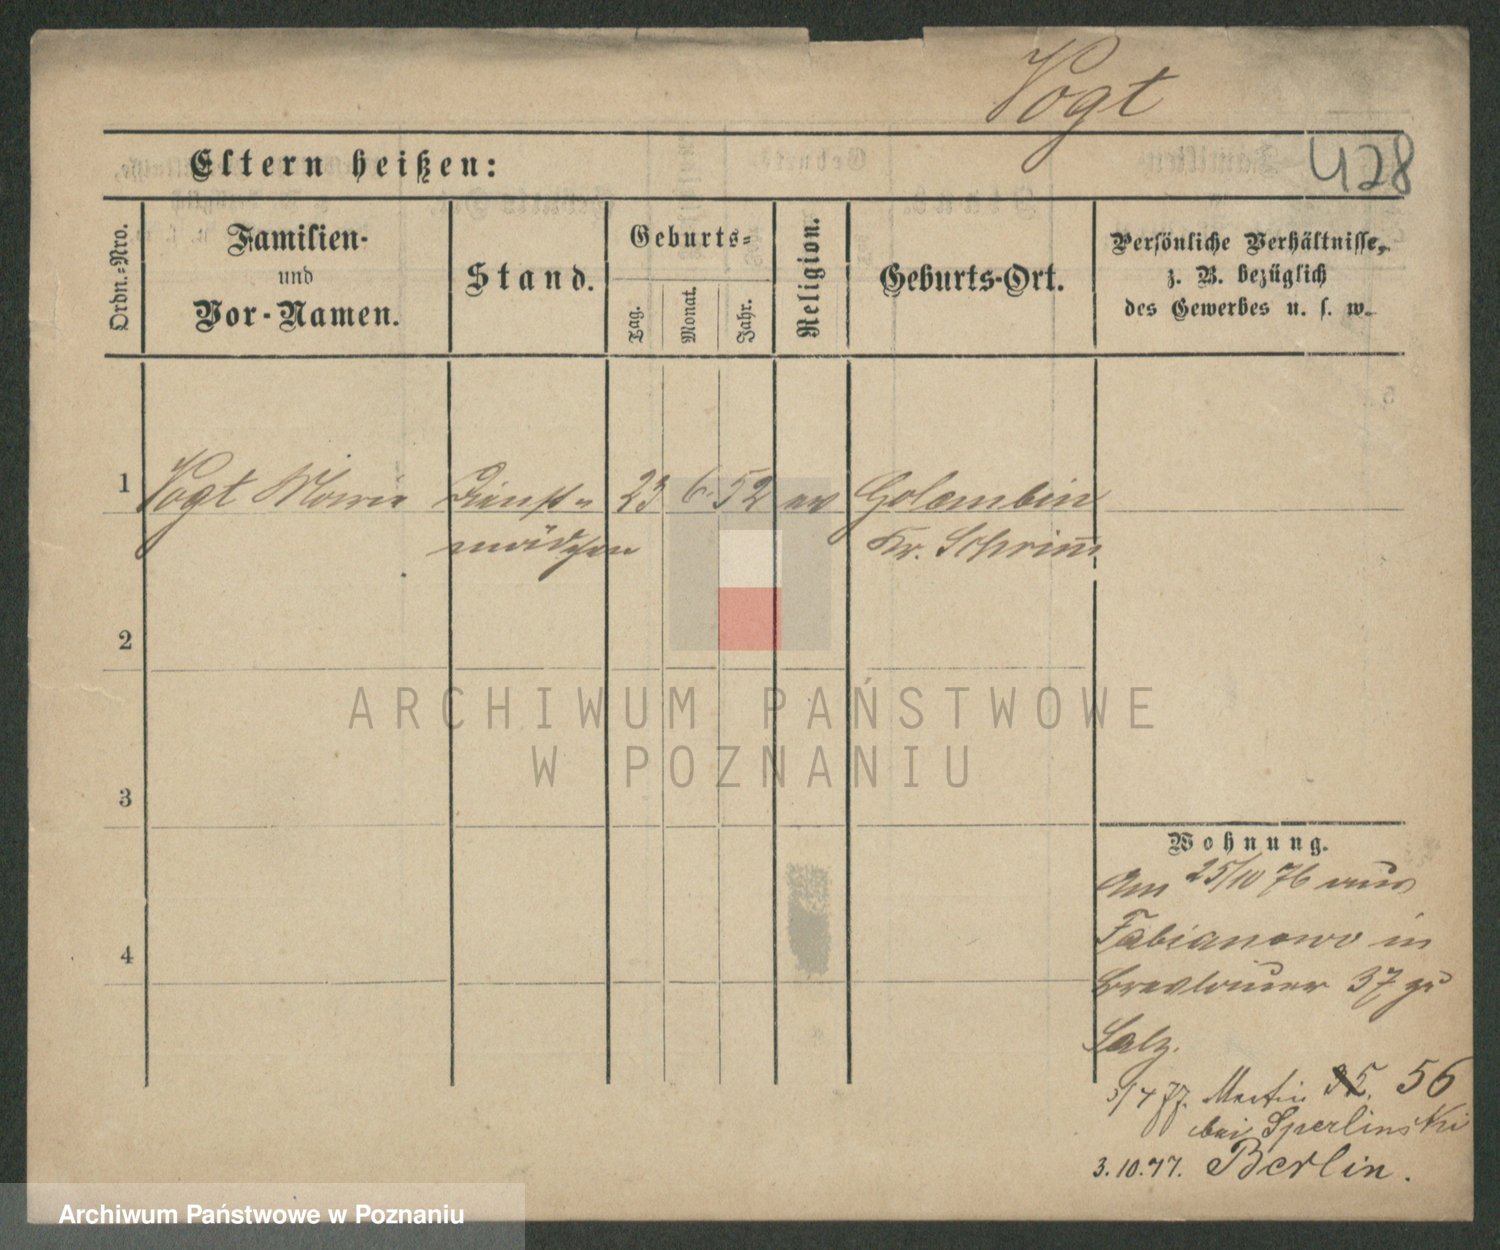 Vogt
428
Eltern heißen:
Ordn.-Nro.
Familien-
und
Vor-Namen.
Stand.
Geburts-
Tag.
Monat.
Jahr.
Religion.
Geburts-Ort.
Persönliche Verhältnisse,
z. B. bezüglich
des Gewerbes u. s. w.
1 Vogt Marie Dienst- 23 6. 52 ev Golembin
mädchen Kr. Schrim̄
2
3
4
ARCHIWUM PAŃSTWOWE
W POZNANIU
Wohnung.
Am 25/10 76 aus
Fabianowo in
Breslauer 37 zu
Salz.
3/4 77. Martin 56
bei Sperlinski
3.10.77. Berlin.
Archiwum Państwowe w Poznaniu